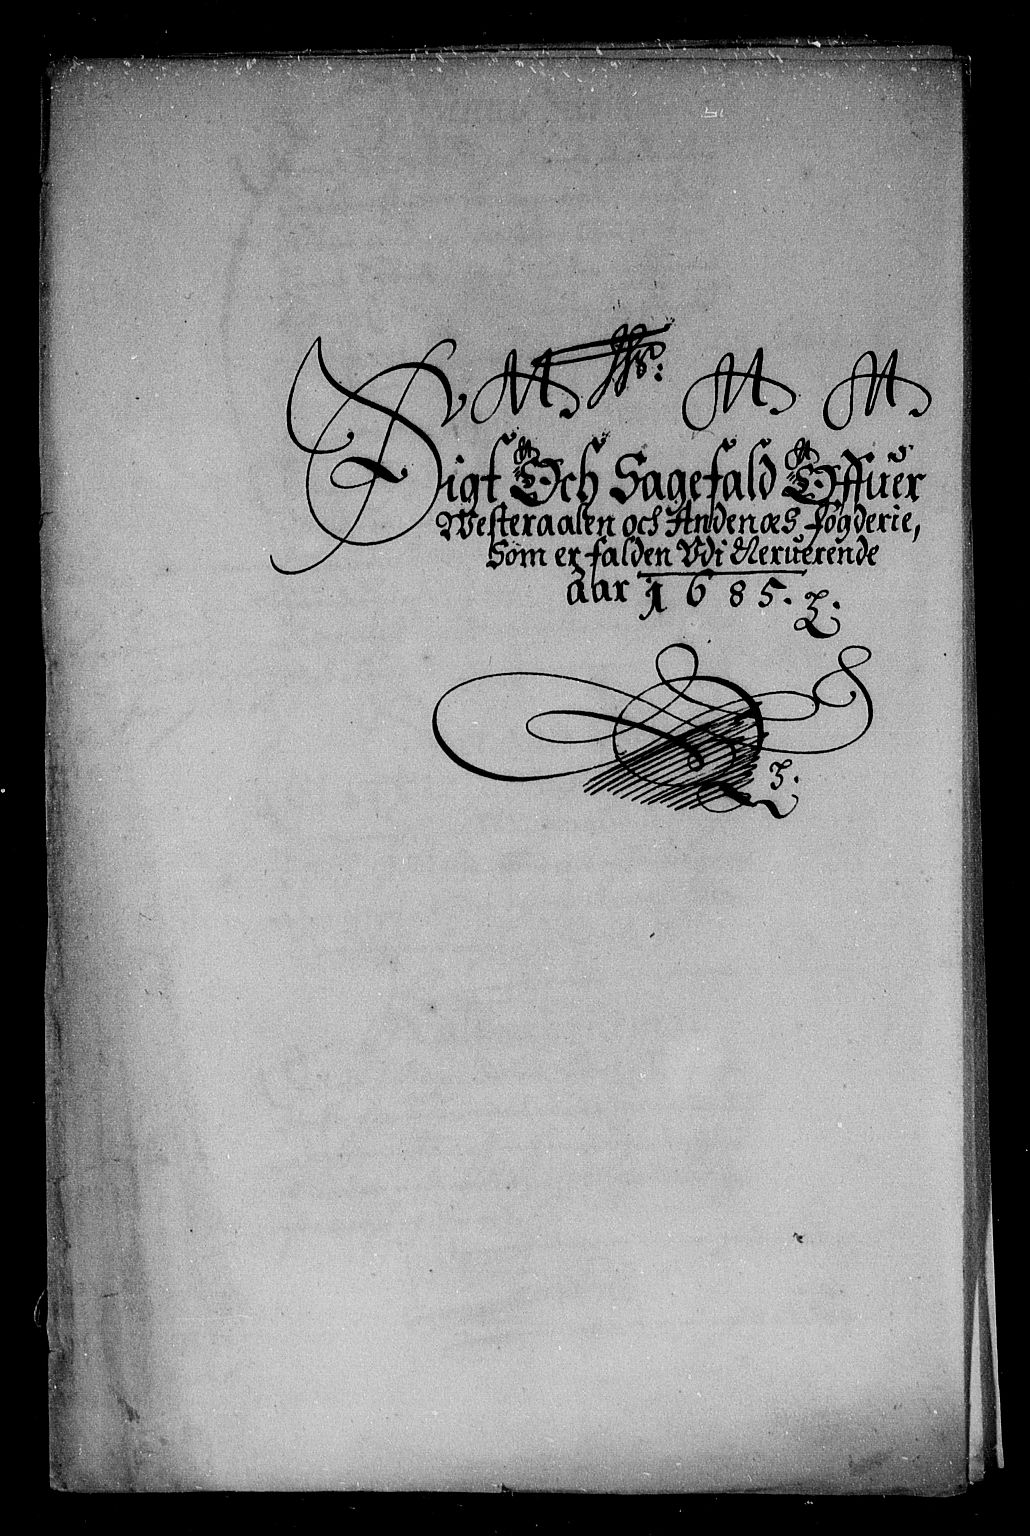 Sigt Och Sagefald Offuer
Westeraalen och Andenæs fogderie,
Som er falden Vdi Neruerende
aar 1685.